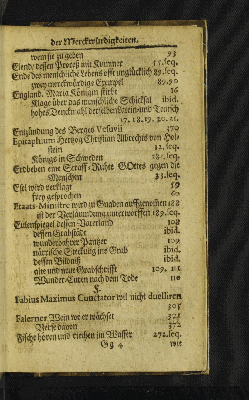 der Merckwürdigkeiten.
wem sie zu geben 93
Elend/ dessen Proceß mit Kummer 17. seq.
Ende des menschliche Lebens offt unglücklich 89. seq.
zwey merckwürdige Exempel 89. 90
England. Maria Königin stirbt 16
Klage über das menschliche Schicksal ibid.
hohes Denckmahl derselben Latein und Teutsch
17. 18. 19. 20. 21.
Entzündung des Berges Vesuvii 170
Epitaphium Hertzog Christian Albrechts von Hol-
stein 12.
Königs in Schweden
Erdbeben eine Straff-Ruthe GOttes gegen die
Menschen 33. seq.
Esel wird verklagt 59
frey gesprochen 60
Etaats-Ministre wird zu Gnaden auffgenommen 188
ist der Verläumdung unterworffen 189. seq.
Eulenspiegel dessen Vaterland 108
dessen Grabstädt ibid.
wunderbahrer Pantzer 109
närrische Steckung ins Grab ibid.
dessen Bildniß ibid.
alte und neue Grabschrifft 109. 111
Wunder-Curen nach dem Tode 110
F.
Fabius Maximus Cunctator wil nicht duelliren
305
Falerner Wein wo er wächset 321
Verse davon 372
Fische hören und riechen im Wasser 272. seq.
Gg 4 wie